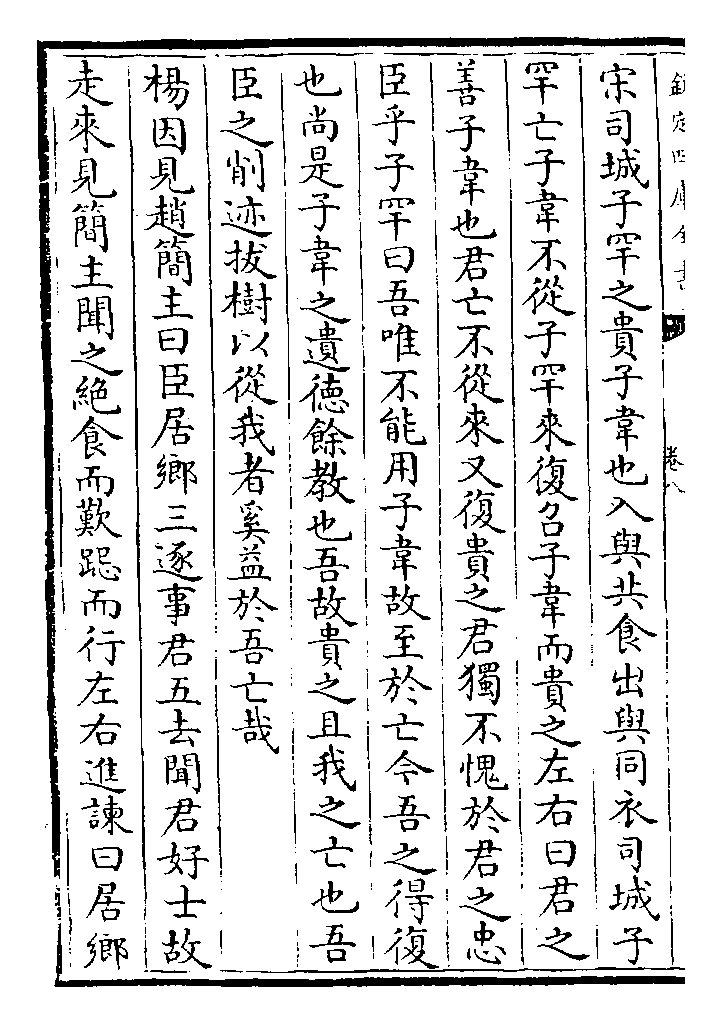 欽定四庫全書
卷八
宋司城子罕之貴子韋也入與共食出與同衣司城子
罕亡子韋不從子罕來復召子韋而貴之左右曰君之
善子韋也君亡不從來又復貴之君獨不愧於君之忠
臣乎子罕曰吾唯不能用子韋故至於亡今吾之得復
也尚是子韋之遺徳餘教也吾故貴之且我之亡也吾
臣之削迹拔樹以從我者奚益於吾亡哉
楊因見趙簡主曰臣居鄉三逐事君五去聞君好士故
走來見簡主聞之絶食而歎跽而行左右進諫曰居鄉